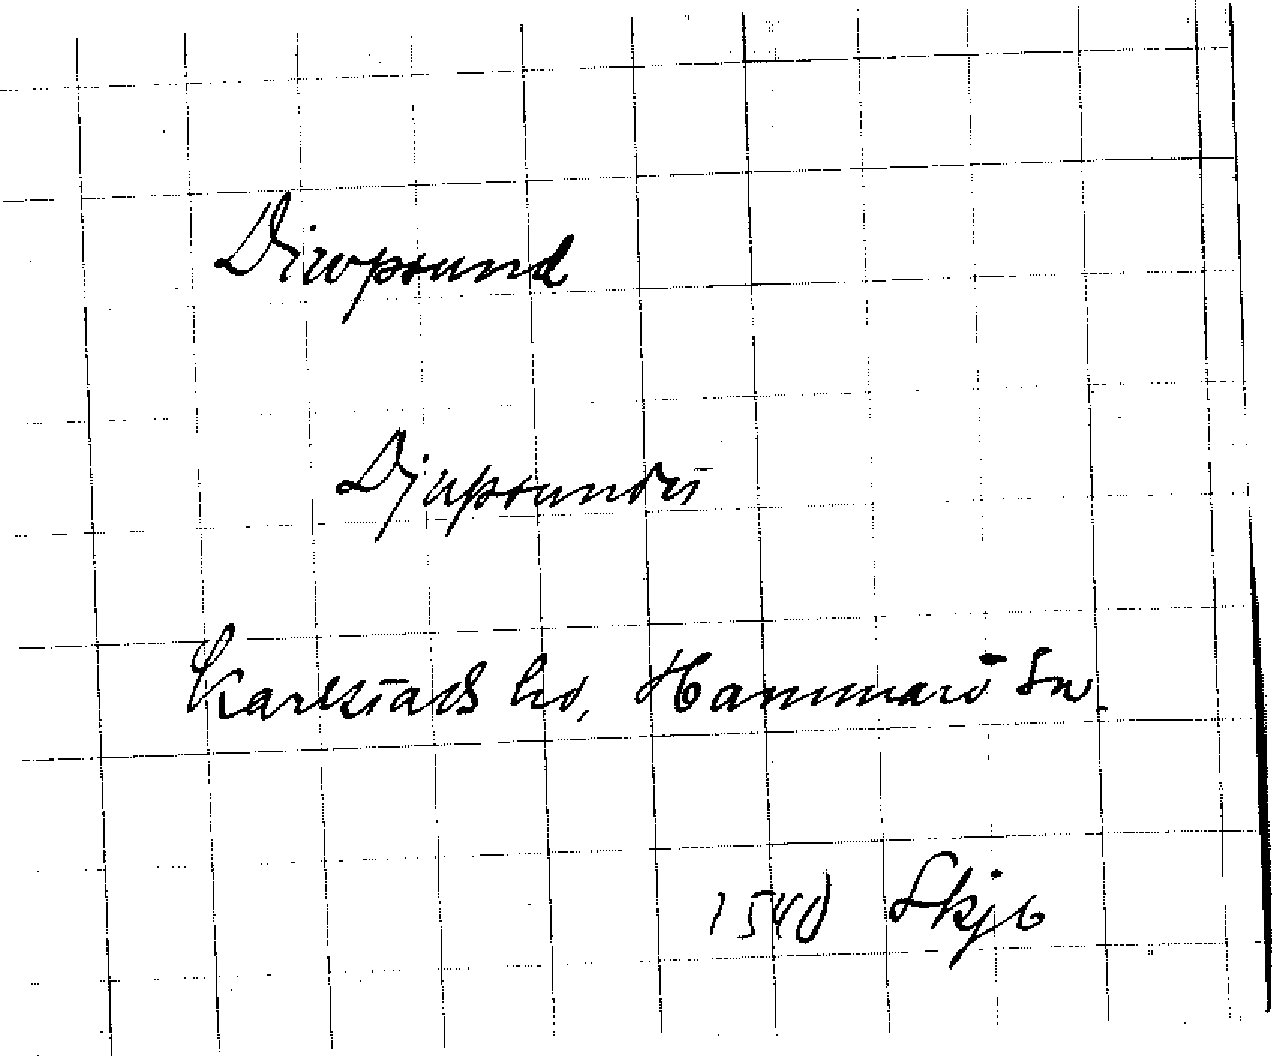 Diwpsund
Djupsundet
Karlstads hd, Hammarö Sn.
1540 Skjb